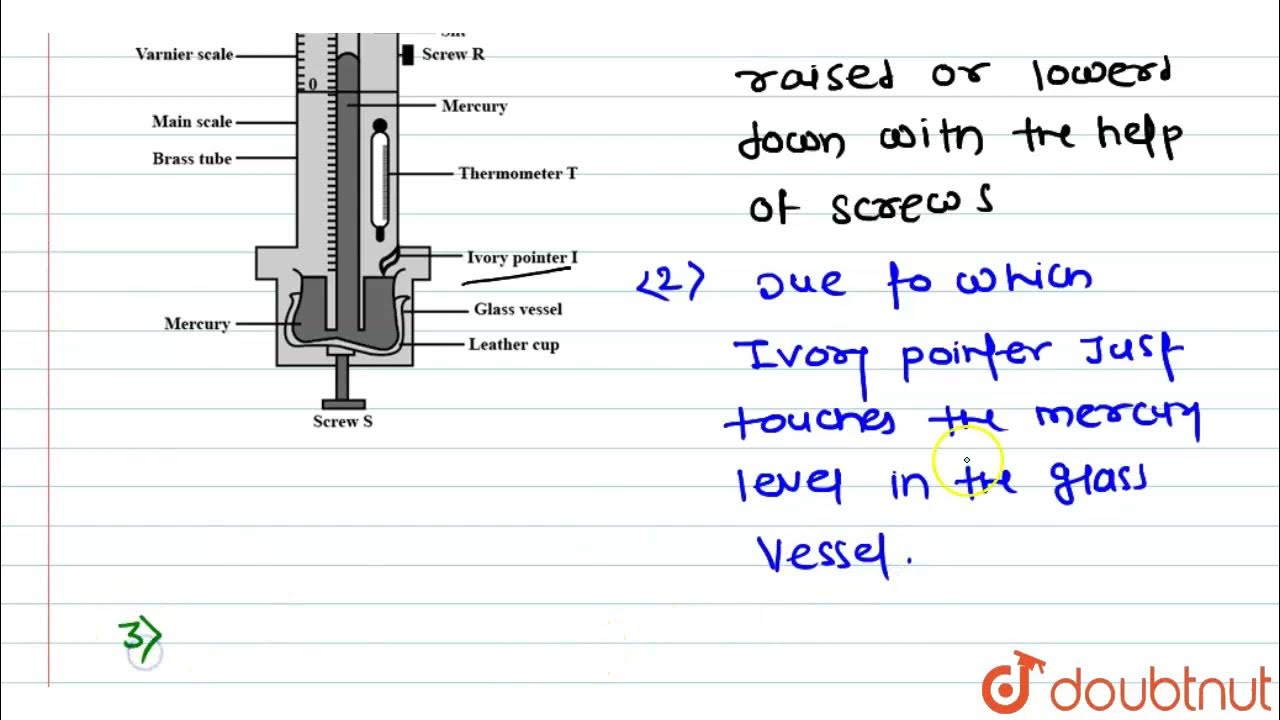 Varnier scale
0
Screw R
Mercury
Main scale
Brass tube
Thermometer T
Ivory pointer I
Glass vessel
Mercury
Leather cup
Screw S
raised or lowerd
down with the help
of screw S
(2) Due to which
Ivory pointer Just
touches the mercury
level in the glass
Vessel.
3)
doubtnut